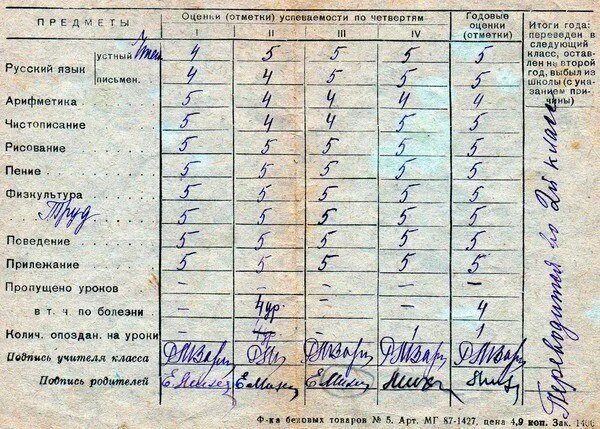 ПРЕДМЕТЫ Оценки (отметки) успеваемости по четвертям Годовые оценки (отметки) Итоги года: переведен в следующий класс, оставлен на второй год, выбыл из школы (с указанием причины)
I II III IV
Русский язык устный Чтен 4 5 5 5 5
письмен. 4 4 5 5 5
Арифметика 5 4 4 4 4
Чистописание 5 4 4 5 5
Рисование 5 5 5 5 5
Пение 5 5 5 5 5
Физкультура 5 5 5 5 5
Труд 5 5 5 5 5
Поведение 5 5 5 5 5
Прилежание 5 5 5 5 5
Пропущено уроков – – – –
в т. ч по болезни – 4 ур – – 4
Колич. опоздан. на уроки – – 1 1
Подпись учителя класса
Подпись родителей
Переводится во 2й класс
Ф-ка беловых товаров № 5. Арт. МГ 87-1427, цена 4,9 коп. Зак. 1400